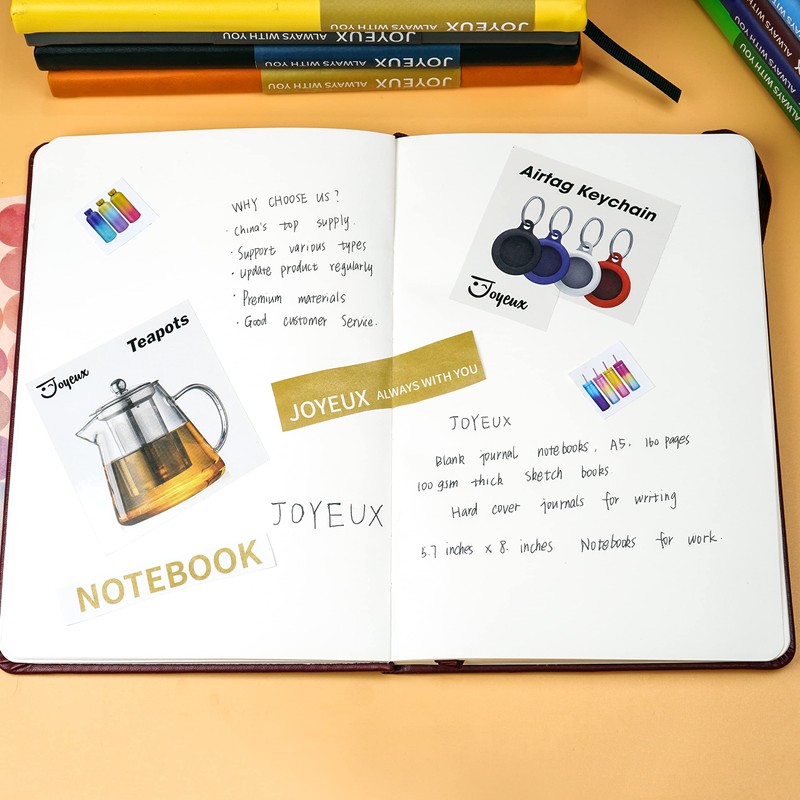 JOYEUX ALWAYS WITH YOU
JOYEUX ALWAYS WITH YOU
JOYEUX ALWAYS WITH YOU
JOYEUX ALWAYS WITH YOU
ALWAYS WITH YOU
ALWAYS WITH YOU
ALWAYS WITH YOU
WHY CHOOSE US?
· China's top supply.
· Support various types
· Update product regularly
· Premium materials
· Good customer Service.
Teapots
Joyeux
JOYEUX ALWAYS WITH YOU
JOYEUX
NOTEBOOK
Airtag Keychain
Joyeux
JOYEUX
Blank journal notebooks, A5, 160 pages
100 gsm thick Sketch books
Hard cover journals for writing
5.7 inches x 8. inches Notebooks for work.